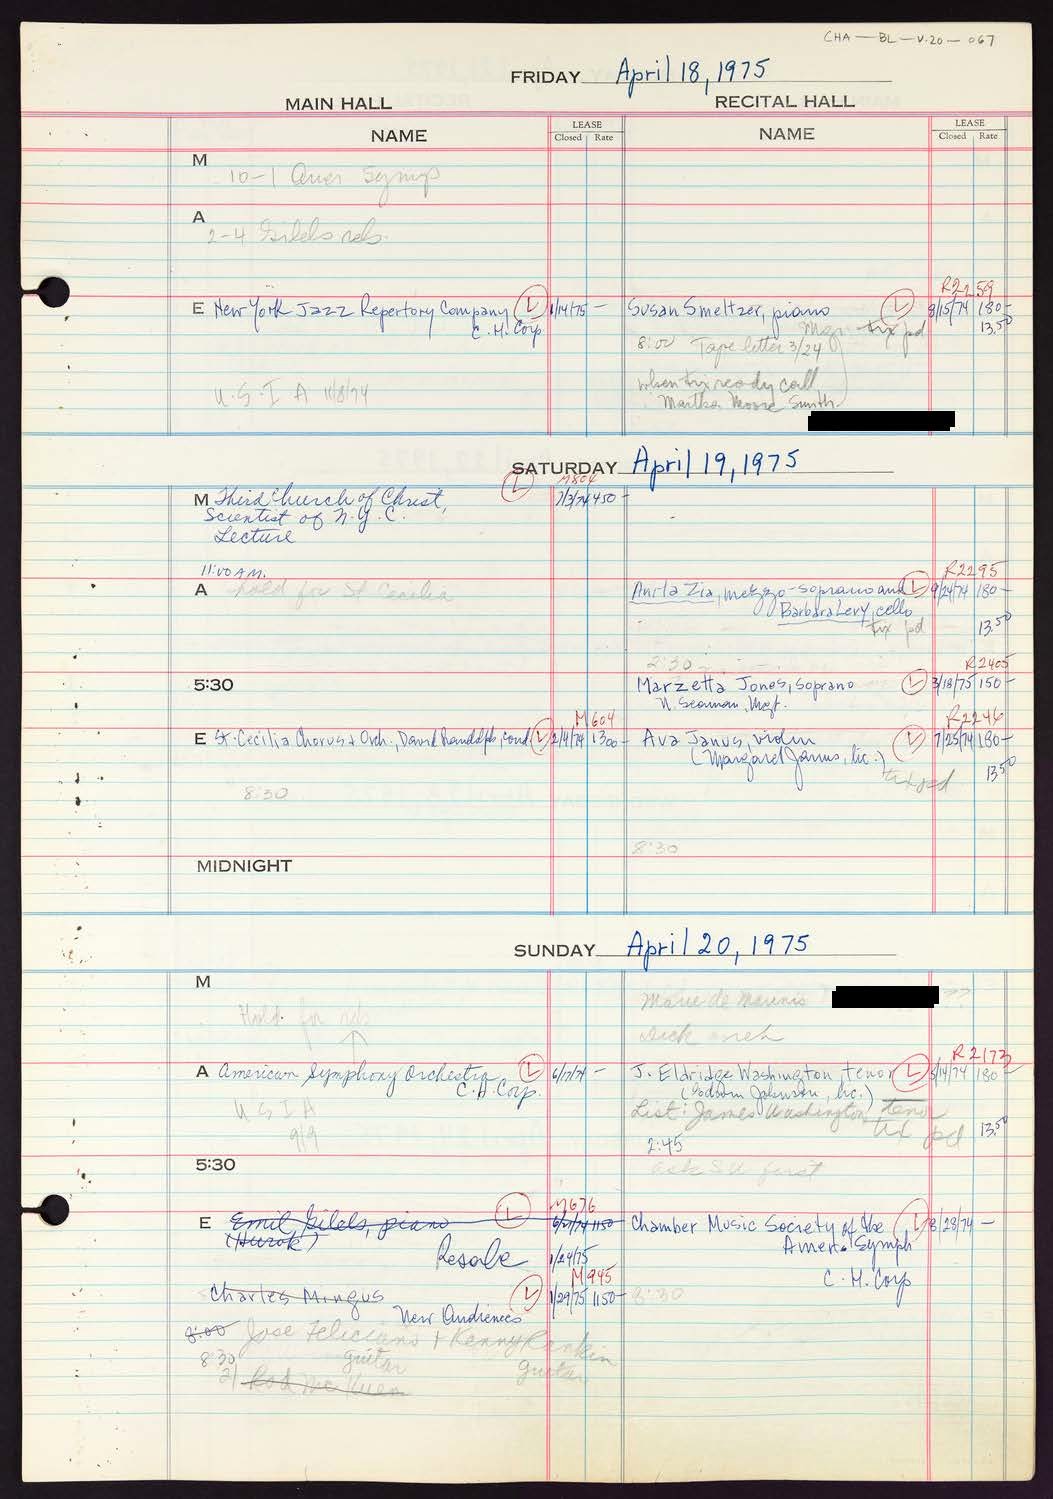 CHA — BL — V.20 — 067
FRIDAY April 18, 1975
MAIN HALL
RECITAL HALL
NAME
LEASE
Closed Rate
NAME
LEASE
Closed Rate
M
10-1 Amer Symp
A
2-4 Gilels reh.
R2259
E New York Jazz Repertory Company L 1/14/75 —
C.H. Corp
Susan Smeltzer, piano L 8/15/74 180-
Mgr tix pd 13.50
8:00 Tape letter 3/24
U.S.I A 11/8/74
when tix ready call
Martha Moore Smith
SATURDAY April 19, 1975
L M804
M Third Church of Christ, 7/3/74 450-
Scientist of N.Y.C.
Lecture
11:00 A.M.
A hold for St Cecilia
R2295
Anita Zia, mezzo-soprano and L 9/24/74 180-
Barbara Levy, cello
tix pd 13.50
2:30
5:30
R2405
Marzetta Jones, soprano L 3/18/75 150-
N. Seaman, Mgt.
M604
E St. Cecilia Chorus & Orch., David Randolph, cond. L 2/4/74 1300-
8:30
R2246
Ava Janus, violin L 7/25/74 180-
(Margaret Janus, lic.)
tix pd 13.50
8:30
MIDNIGHT
SUNDAY April 20, 1975
M
Hold for reh
Marie de Marinis
A American Symphony Orchestra L 6/17/74 —
C.H. Corp.
U S I A
9/9
R2173
J. Eldridge Washington, tenor L 5/14/74 180-
(Godson Johnson, lic.)
List: James Washington, tenor
tix pd 13.50
2:45
ask SU first
5:30
M676
E Emil Gilels, piano L 6/21/74 1150
(Hurok)
Resale 1/24/75
M945
Charles Mingus L 1/29/75 1150-
New Audiences
8:00 Jose Feliciano + Kenny Rankin
8:30 guitar guitar
2) Rod McKuen
Chamber Music Society of the L 8/28/74 —
Amer. Symph
C.H. Corp
8:30